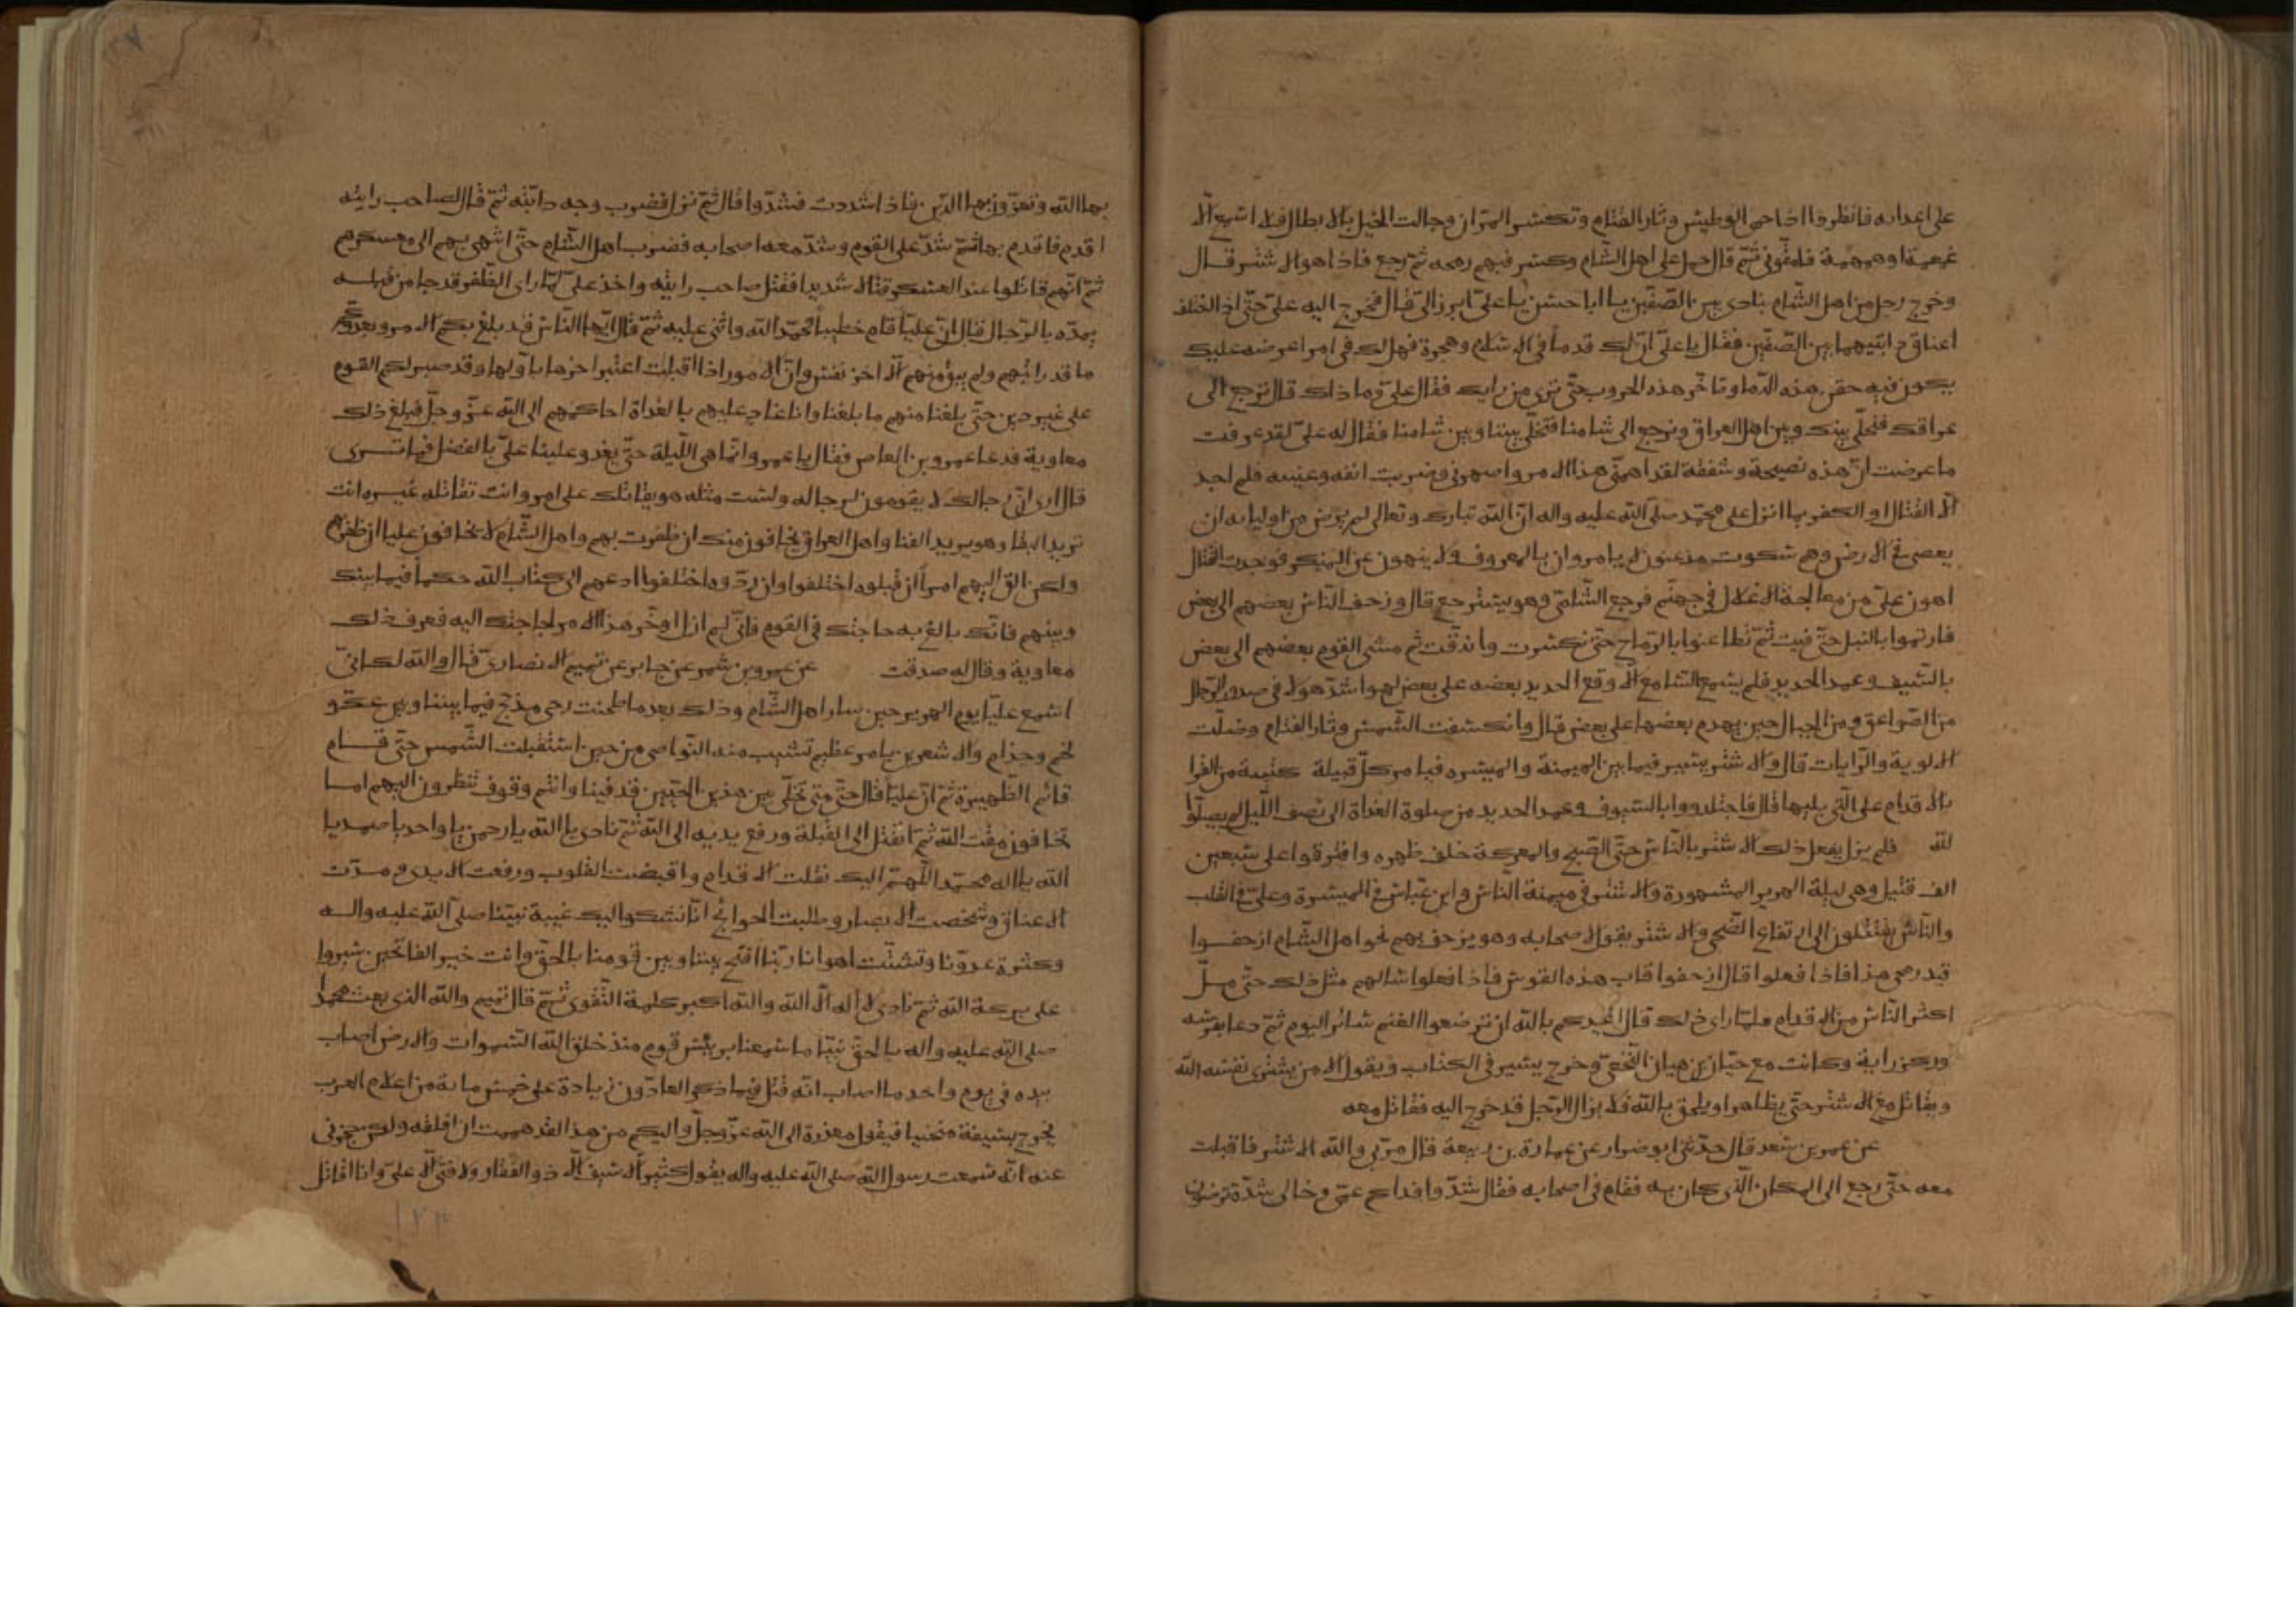 على اعدايه فانظروا اذا حمى الوطيس وثار القتام وتكسر المران وجالت الخيل بالابطال فلا اسمع الا
غمغمة او همهمة قال ثم حمل على اهل الشام وكسر فيهم رمحه ثم رجع فاذا هو الاشتر قال
وخرج رجل من اهل الشام ينادى بين الصفين يا ابا حسن يا على ابرز الى قال فخرج اليه على حتى اذا اختلف
اعناق دابتيهما بين الصفين فقال يا على ان لك قدما فى الاسلام وهجرة فهل لك فى امر اعرضه عليك
يكون فيه حقن هذه الدما وتاخر هذه الحروب حتى ترى من رايك فقال على وما ذاك قال ترجع الى
عراقك فنخلى بينك وبين اهل العراق ونرجع الى شامنا فتخلى بيننا وبين شامنا فقال له على لقد عرفت
ما عرضت ان هذه نصيحة وشفقة لقد اهمنى هذا الامر واسهرنى وضربت انفه وعينيه فلم اجد
الا القتال او الكفر بما انزل على محمد صلى الله عليه واله ان الله تبارك وتعالى لم يرض من اوليايه ان
يعصى فى الارض وهم سكوت مذعنون لا يامرون بالمعروف ولا ينهون عن المنكر فوجدت القتال
اهون على من معالجة الاغلال فى جهنم فرجع الشامى وهو يسترجع قال وزحف الناس بعضهم الى بعض
فارتموا بالنبل حتى فنيت ثم تطاعنوا بالرماح حتى تكسرت واندقت ثم مشى القوم بعضهم الى بعض
بالسيف وعمد الحديد فلم يسمع السامع الا وقع الحديد بعضه على بعض لهو اشد هولا فى صدور الرجال
من الصواعق ومن الجبال حين يهدم بعضها على بعض قال وانكسفت الشمس وثار القتام وضلت
الالوية والرايات قال والاشتر يسير فيما بين الميمنة والميسره فيامر كل قبيلة كتيبة من القرا
بالاقدام على التى يليها قال فاجتلدوا بالسيوف وعمد الحديد من صلوة الغداة الى نصف الليل لم يصلوا
لله فلم يزل يفعل ذلك الاشتر بالناس حتى اصبح والمعركة خلف ظهره وافترقوا على سبعين
الف قتيل وهى ليلة الهرير المشهورة والاشتر فى ميمنة الناس وابن عباس فى الميسرة وعلى فى القلب
والناس يقتتلون الى ارتفاع الضحى والاشتر يقول لاصحابه وهو يزحف بهم نحو اهل الشام ازحفوا
قيد رمحى هذا فاذا فعلوا قال ازحفوا قاب هذه القوس فاذا فعلوا سالهم مثل ذلك حتى مل
اكثر الناس من الاقدام فلما راى ذلك قال اعيذكم بالله ان ترضعوا الغنم سائر اليوم ثم دعا بفرسه
وركز راية وكانت مع حيان بن هيان النخعى وخرج يسير فى الكتاب ويقول الا من يشترى نفسه لله
ويقاتل مع الاشتر حتى يظاهر او يلحق بالله فلا يزال الرجل قد خرج اليه فقاتل معه
عن عمر بن سعد قال حدثنى ابو ضرار عن عمارة بن ربيعة قال مر بى والله الاشتر فاقبلت
معه حتى رجع الى المكان الذى كان به فقام فى اصحابه فقال شدوا فداكم عمى وخالى شدة ترضون
بها الله وتعزون بها الدين فاذا شددت فشدوا قال ثم نزل فضرب وجه دابته ثم قال لصاحب رايته
اقدم فاقدم بها ثم شد على القوم وشد معه اصحابه فضرب اهل الشام حتى انتهى بهم الى معسكرهم
ثم انهم قاتلوا عند العسكر قتالا شديدا فقتل صاحب رايته واخذ على لما راى الظفر قد جا من قبله
يمده بالرجال قال ان عليا قام خطيبا فحمد الله واثنى عليه ثم قال ايها الناس قد بلغ بكم الامر وبعدوكم
ما قد رايتم ولم يبق منهم الا اخر نفس وان الامور اذا اقبلت اعتبر اخرها باولها وقد صبر لكم القوم
على غير دين حتى بلغنا منهم ما بلغنا وانا غاد عليهم بالغداة احاكمهم الى الله عز وجل فبلغ ذلك
معاوية فدعا عمرو بن العاص فقال يا عمرو انما هى الليلة حتى يغدو علينا على بالفصل فما ترى
قال ارى ان رجالك لا يقومون لرجاله ولست مثله هو يقاتلك على امر وانت تقاتله غيره انت
تريد البقا وهو يريد الفنا واهل العراق يخافون منك ان ظفرت بهم واهل الشام لا يخافون عليا ان ظفر بهم
ولكن الق اليهم امرا ان قبلوه اختلفوا وان ردوه اختلفوا ادعهم الى كتاب الله حكما فيما بينك
وبينهم فانك بالغ به حاجتك فى القوم فانى لم ازل اوخر هذا الامر لحاجتك اليه فعرف ذلك
معاوية وقال له صدقت عن عمرو بن شمر عن جابر عن تميم الانصارى قال والله لكانى
اسمع عليا يوم الهرير حين سار اهل الشام وذلك بعد ما طحنت رحى مذحج فيما بيننا وبين عك و
لخم وجذام والاشعرين بامر عظيم تشيب منه النواصى من حين استقبلت الشمس حتى قام
قائم الظهيرة ثم ان عليا قال حتى متى نخلى بين هذين الحيين قد فنيا وانتم وقوف تنظرون اليهم اما
تخافون مقت الله ثم انفتل الى القبلة ورفع يديه الى الله ثم نادى يا الله يا رحمن يا واحد يا صمد يا
الله يا اله محمد اللهم اليك نقلت الاقدام وافضت القلوب ورفعت الايدى ومدت
الاعناق وشخصت الابصار وطلبت الحوائج انا نشكوا اليك غيبة نبينا صلى الله عليه واله
وكثرة عدونا وتشتت اهوانا ربنا افتح بيننا وبين قومنا بالحق وانت خير الفاتحين سيروا
على بركة الله ثم نادى لا اله الا الله والله اكبر كلمة التقوى ثم قال تميم والله الذى بعث محمدا
صلى الله عليه واله بالحق نبيا ما سمعنا برئيس قوم منذ خلق الله السموات والارض اصاب
بيده فى يوم واحد ما اصاب انه قتل فيما ذكر العادون زيادة على خمس ماية من اعلام العرب
يخرج بسيفه منحنيا فيقول معذرة الى الله عز وجل واليكم من هذا لقد هممت ان افلقه ولكن حجزنى
عنه انى سمعت رسول الله صلى الله عليه واله يقول كثيرا لا سيف الا ذو الفقار ولا فتى الا على وانا اقاتل